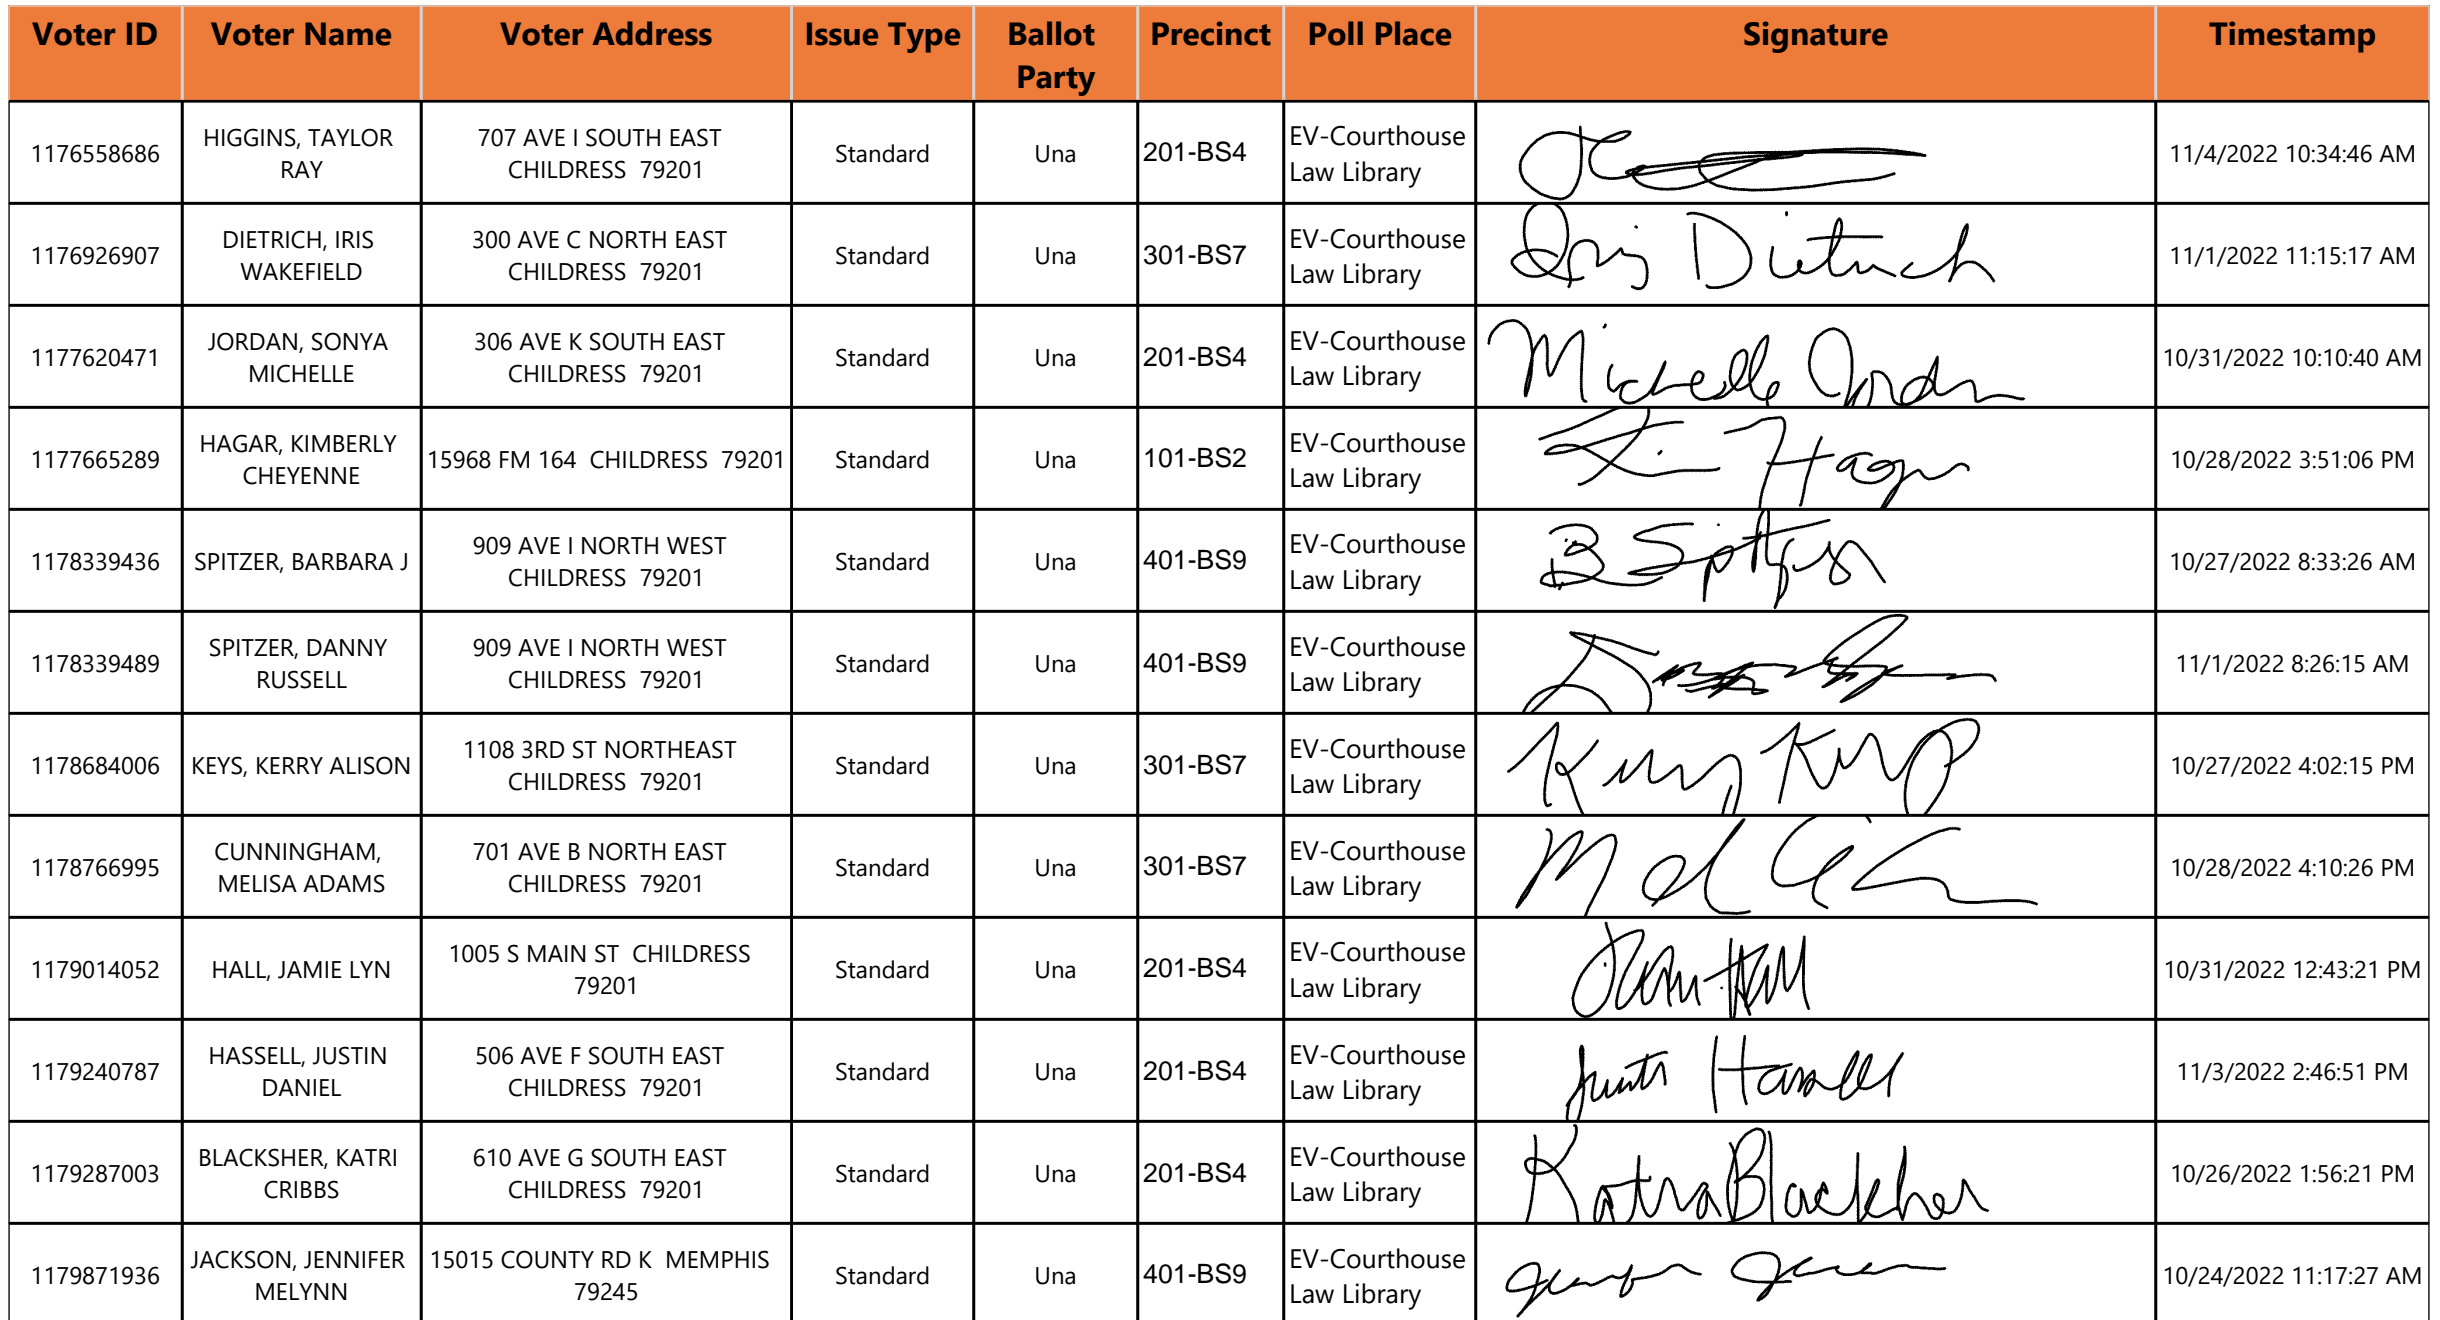 Voter ID Voter Name Voter Address Issue Type Ballot Party Precinct Poll Place Signature Timestamp
1176558686 HIGGINS, TAYLOR RAY 707 AVE I SOUTH EAST CHILDRESS 79201 Standard Una 201-BS4 EV-Courthouse Law Library 11/4/2022 10:34:46 AM
1176926907 DIETRICH, IRIS WAKEFIELD 300 AVE C NORTH EAST CHILDRESS 79201 Standard Una 301-BS7 EV-Courthouse Law Library Iris Dietrich 11/1/2022 11:15:17 AM
1177620471 JORDAN, SONYA MICHELLE 306 AVE K SOUTH EAST CHILDRESS 79201 Standard Una 201-BS4 EV-Courthouse Law Library Michelle Jordan 10/31/2022 10:10:40 AM
1177665289 HAGAR, KIMBERLY CHEYENNE 15968 FM 164 CHILDRESS 79201 Standard Una 101-BS2 EV-Courthouse Law Library Kim Hagar 10/28/2022 3:51:06 PM
1178339436 SPITZER, BARBARA J 909 AVE I NORTH WEST CHILDRESS 79201 Standard Una 401-BS9 EV-Courthouse Law Library B Spitzer 10/27/2022 8:33:26 AM
1178339489 SPITZER, DANNY RUSSELL 909 AVE I NORTH WEST CHILDRESS 79201 Standard Una 401-BS9 EV-Courthouse Law Library 11/1/2022 8:26:15 AM
1178684006 KEYS, KERRY ALISON 1108 3RD ST NORTHEAST CHILDRESS 79201 Standard Una 301-BS7 EV-Courthouse Law Library 10/27/2022 4:02:15 PM
1178766995 CUNNINGHAM, MELISA ADAMS 701 AVE B NORTH EAST CHILDRESS 79201 Standard Una 301-BS7 EV-Courthouse Law Library 10/28/2022 4:10:26 PM
1179014052 HALL, JAMIE LYN 1005 S MAIN ST CHILDRESS 79201 Standard Una 201-BS4 EV-Courthouse Law Library 10/31/2022 12:43:21 PM
1179240787 HASSELL, JUSTIN DANIEL 506 AVE F SOUTH EAST CHILDRESS 79201 Standard Una 201-BS4 EV-Courthouse Law Library Justin Hassell 11/3/2022 2:46:51 PM
1179287003 BLACKSHER, KATRI CRIBBS 610 AVE G SOUTH EAST CHILDRESS 79201 Standard Una 201-BS4 EV-Courthouse Law Library Katri Blacksher 10/26/2022 1:56:21 PM
1179871936 JACKSON, JENNIFER MELYNN 15015 COUNTY RD K MEMPHIS 79245 Standard Una 401-BS9 EV-Courthouse Law Library 10/24/2022 11:17:27 AM